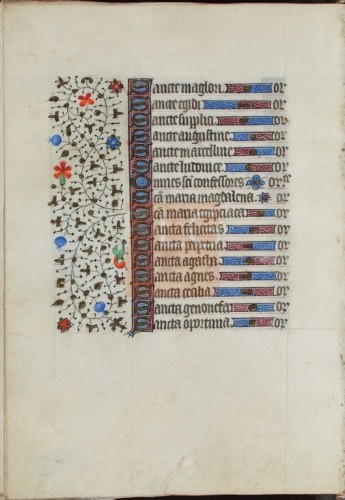 Sancte maglori or
Sancte egidi or
Sancte supplici or
Sancte augustine or
Sancte marcelline or
Sancte ludovice or
Omnes sci confessores or
Scā maria magdalena or
Scā maria egipciaca or
Sancta felicitas or
Sancta perpetua or
Sancta agatha or
Sancta agnes or
Sancta cecilia or
Sancta genovefa or
Sancta oportuna or